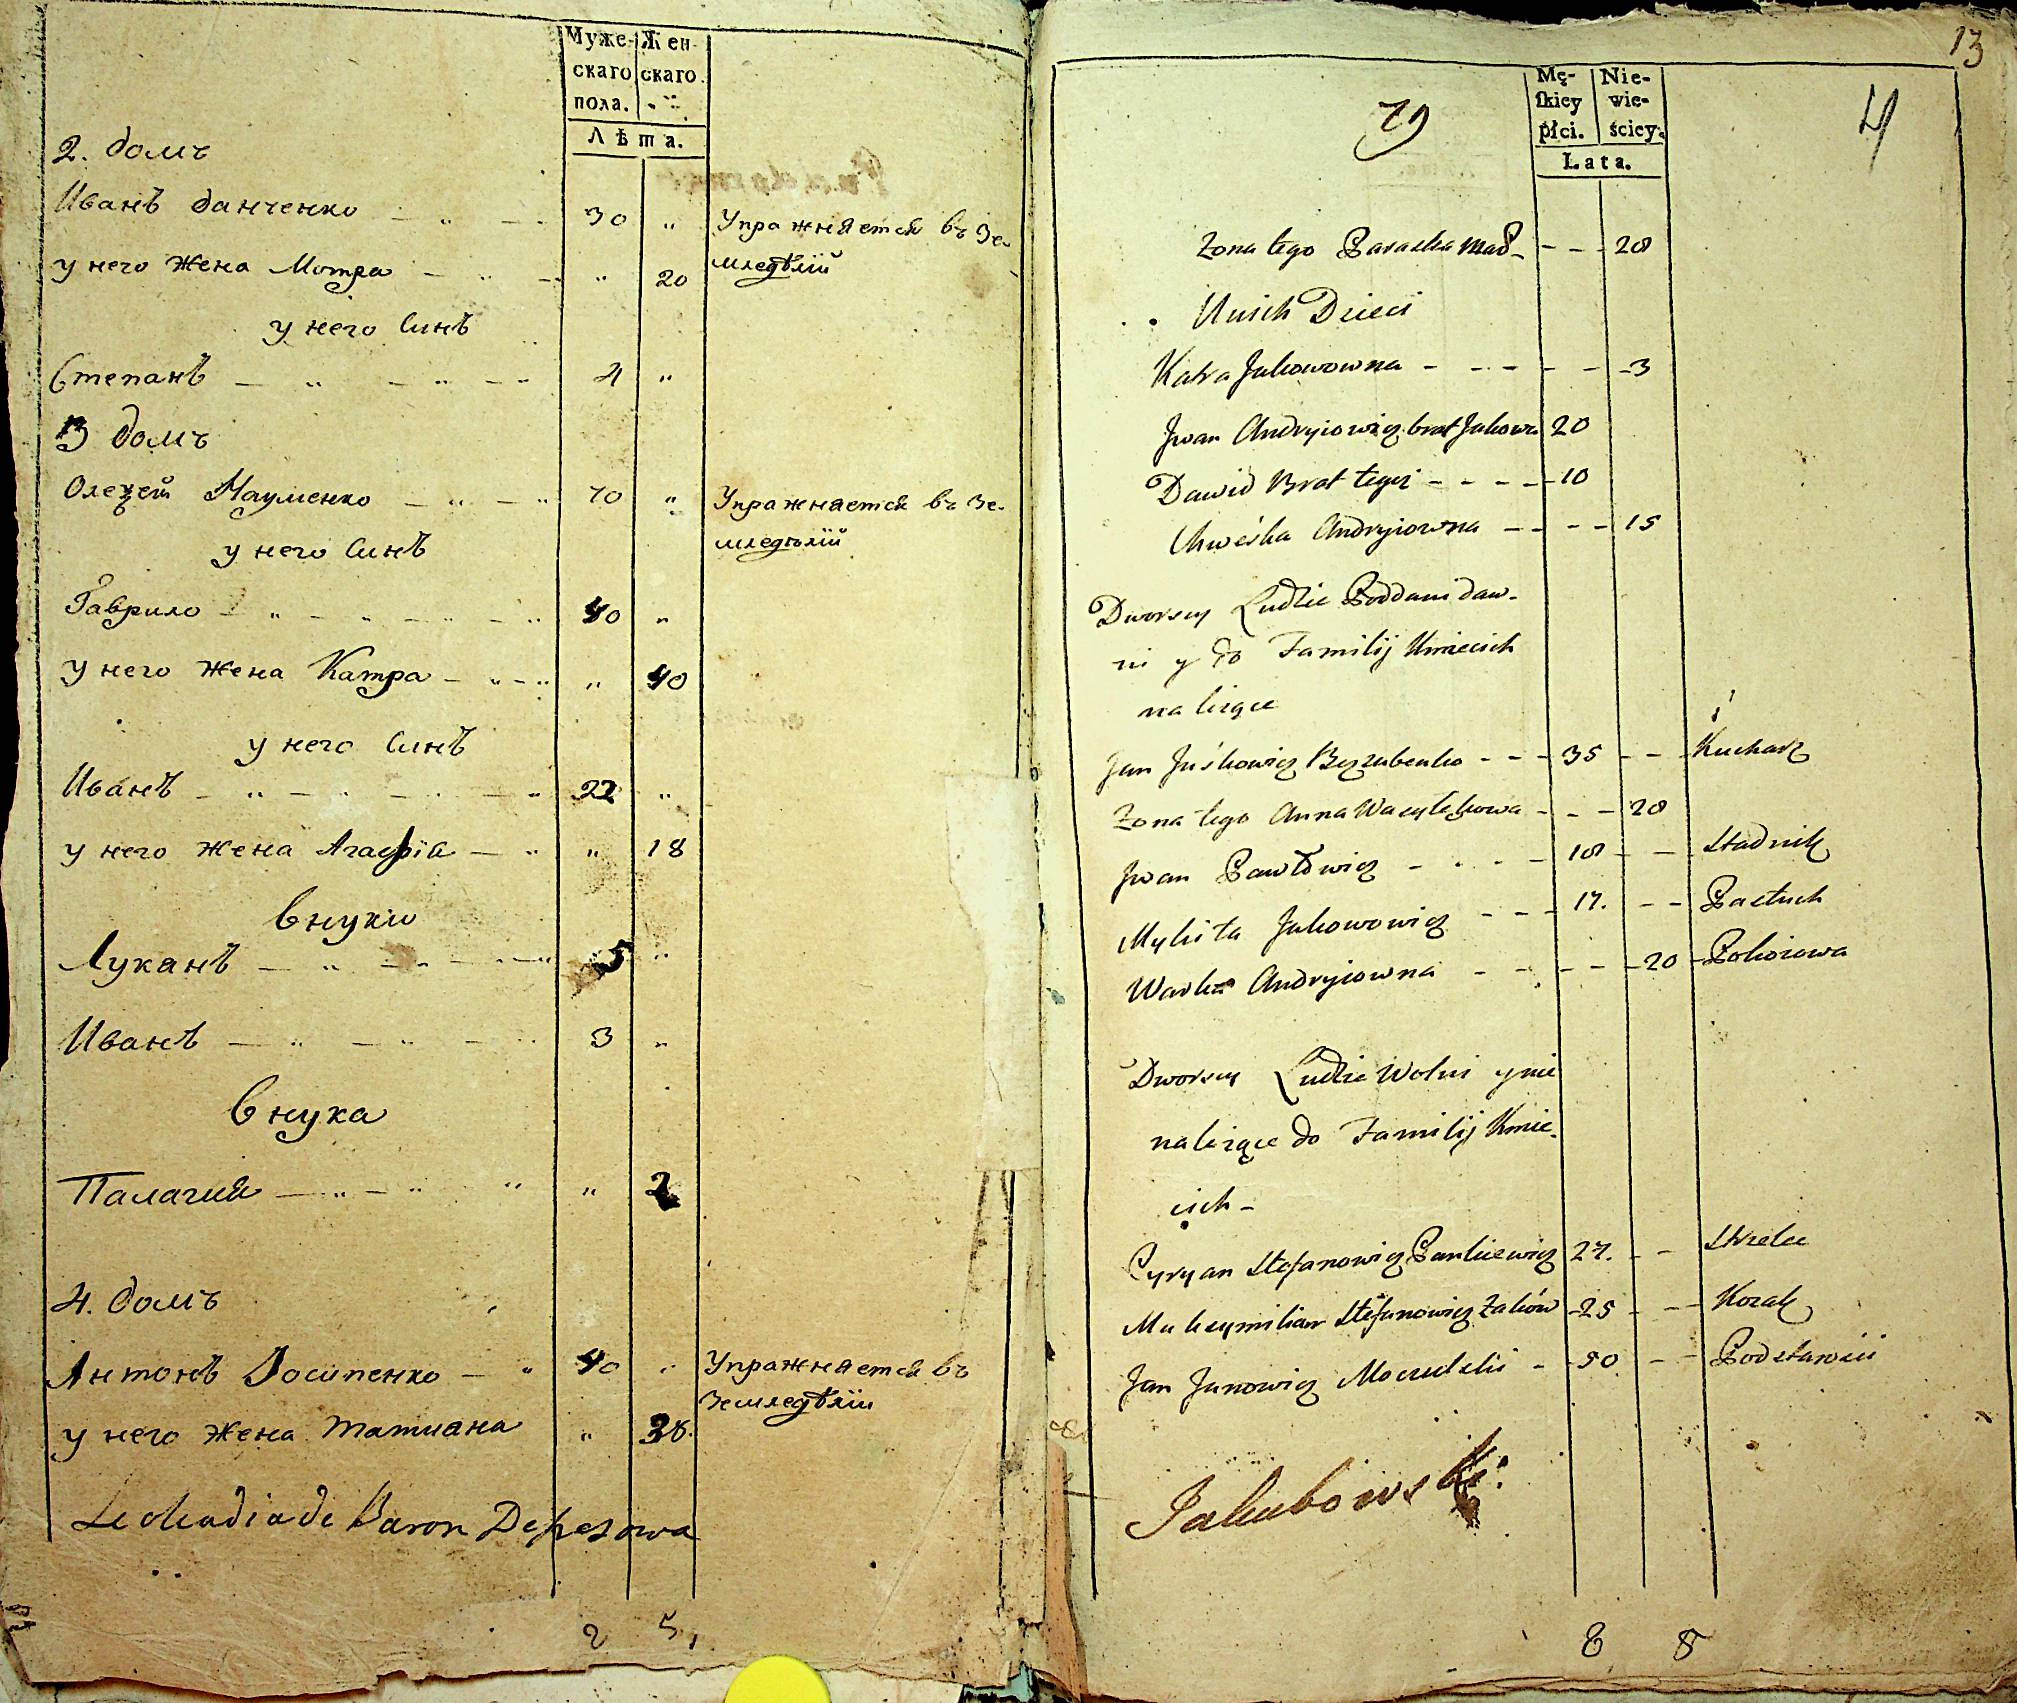 Муже- Жен-
скаго скаго
пола.
Лѣта.
2. домъ
Иванъ Данченко 30 "
Упражняется въ зе-
мледѣлій
у него жена Мотра " 20
у него Синъ
Степанъ 4 "
3 домъ
Олеѯей Науменко 70 "
Упражняется въ зе-
мледѣлій
у него Синъ
Гаврило 40 "
у него жена Катра " 40
у него Синъ
Иванъ 22 "
у него жена Агафія " 18
Внуки
Луканъ 5 "
Иванъ 3 "
Внука
Палагия " 2
4. домъ
Антонъ Восипенко 40 "
Упражняется въ
земледѣліи
у него жена Татиана "
Baron
2 5
13
79
4
Mę- Nie-
skiey wie-
płci. ściey.
Lata.
Zona tego Paraska 20
Unich Dzieci
Katra Jakowowna 3
Jwan Andryiowicz brat Jakowa 20
Dawid Brat tegoż 10
Chweśka Andryiowna 15
Dworscy Ludzie Poddani daw-
ni y do Familij Kmiecich
należące
Jan Juśkowicz Bezzubenko 35 Kucharz
Zona tego Anna Wasylykowa 20
Jwan Pawłowicz 18 Stadnik
Mykita Jakowowicz 17. Pastuch
Warka Andryiowna 20 Pokoiowa
Dworscy Ludzie Wolni y nie
należące do Familij Kmie-
cich -
Cyryan Stefanowicz Pankiewicz 27. Strzelec
Maksymilian Stefanowicz Zaków 25 Kozak
Jan Janowicz Moczulski 50 Podstarości
Jakubowski
8 5